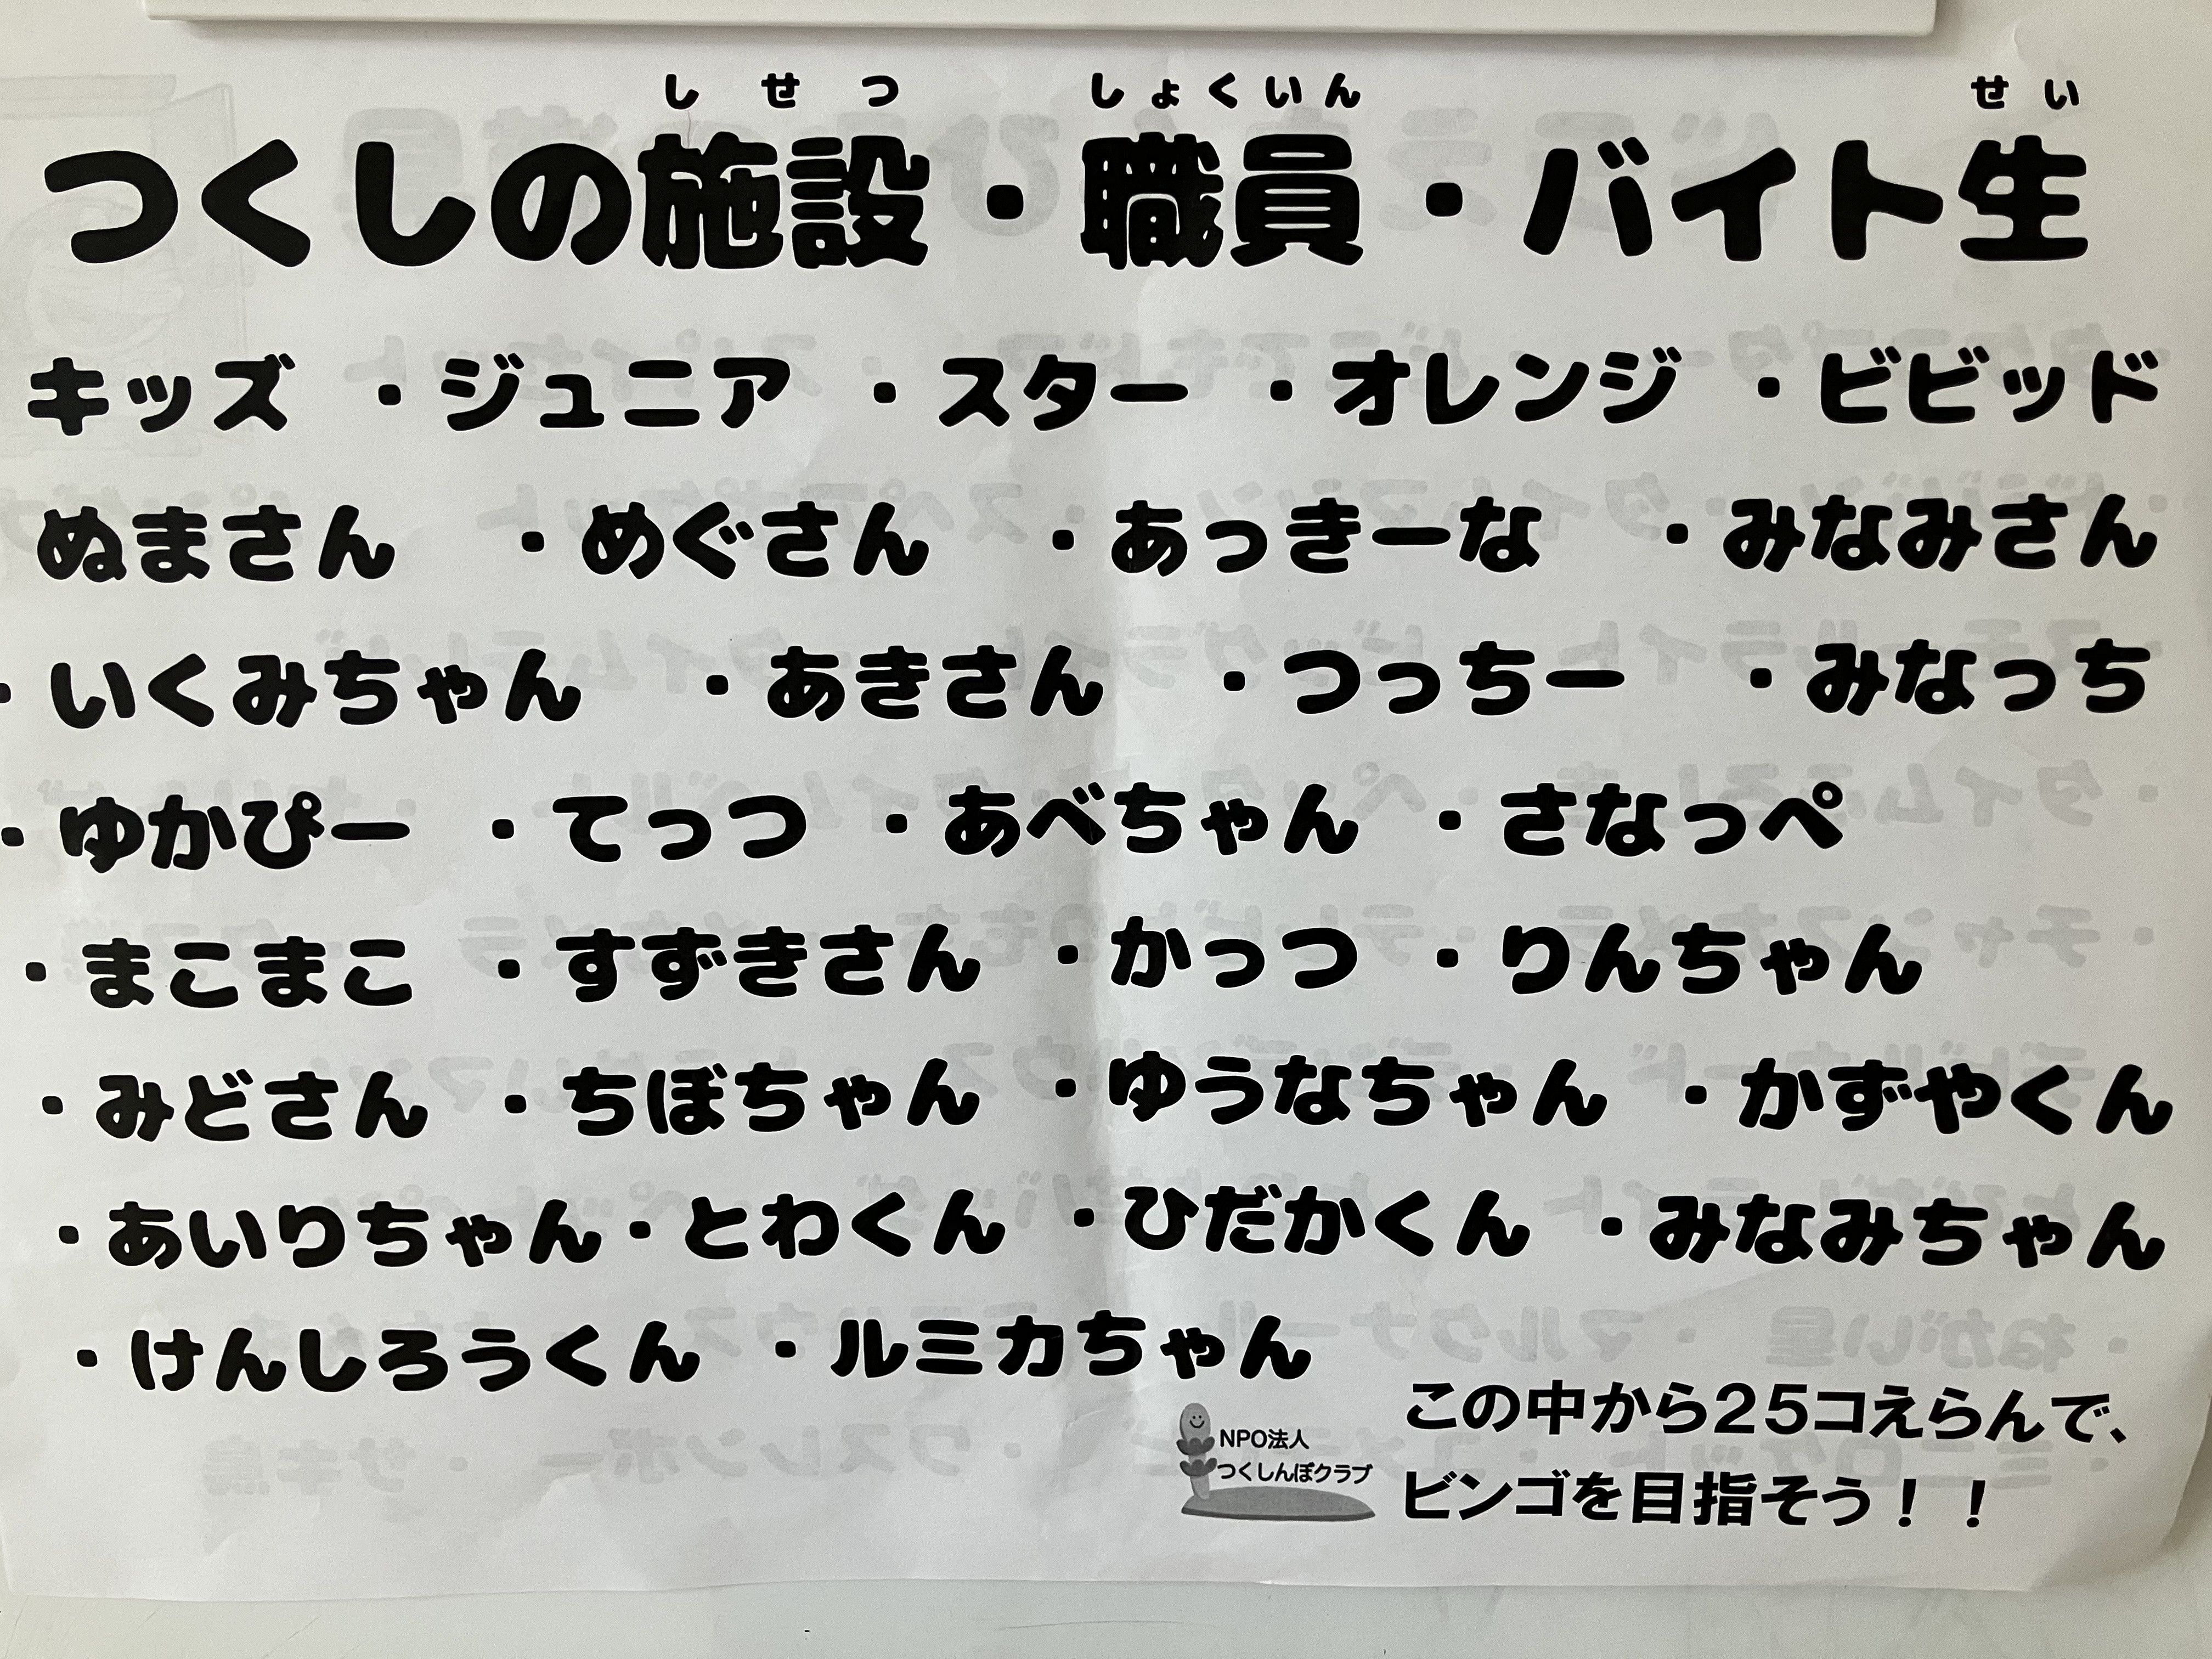 しせつ しょくいん せい
つくしの施設・職員・バイト生
キッズ ・ジュニア ・スター ・オレンジ ・ビビッド
ぬまさん ・めぐさん ・あっきーな ・みなみさん
・いくみちゃん ・あきさん ・つっちー ・みなっち
・ゆかぴー ・てっつ ・あべちゃん ・さなっぺ
・まこまこ ・すずきさん ・かっつ ・りんちゃん
・みどさん ・ちぼちゃん ・ゆうなちゃん ・かずやくん
・あいりちゃん・とわくん ・ひだかくん ・みなみちゃん
・けんしろうくん ・ルミカちゃん
この中から25コえらんで、
ビンゴを目指そう！！
NPO法人
つくしんぼクラブ